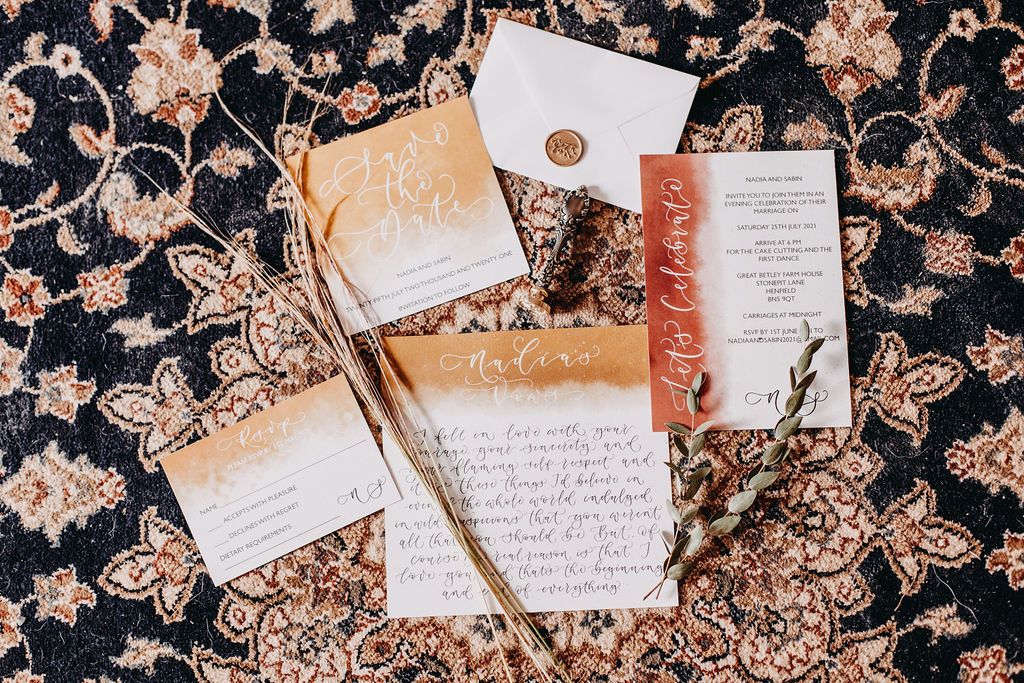 Save
the
Date
NADIA AND SABIN
TWENTY FIFTH JULY TWO THOUSAND AND TWENTY ONE
INVITATION TO FOLLOW
NADIA AND SABIN
INVITE YOU TO JOIN THEM IN AN
EVENING CELEBRATION OF THEIR
MARRIAGE ON
SATURDAY 25TH JULY 2021
ARRIVE AT 6 PM
FOR THE CAKE CUTTING AND THE
FIRST DANCE
GREAT BETLEY FARM HOUSE
STONEPIT LANE
HENFIELD
BN5 9QT
CARRIAGES AT MIDNIGHT
RSVP BY 1ST JUNE TO
NADIAANDSABIN2021@
NS
Let's Celebrate
Nadia's
Vows
I fell in love with your
courage your sincerity and
your flaming self-respect and
these things I'd believe in
even the whole world indulged
in wild suspicions that you weren't
all that you should be But of
course real reason is that I
love you and that's the beginning
and end of everything.
Rsvp
NAME
ACCEPTS WITH PLEASURE
DECLINES WITH REGRET
DIETARY REQUIREMENTS
NS